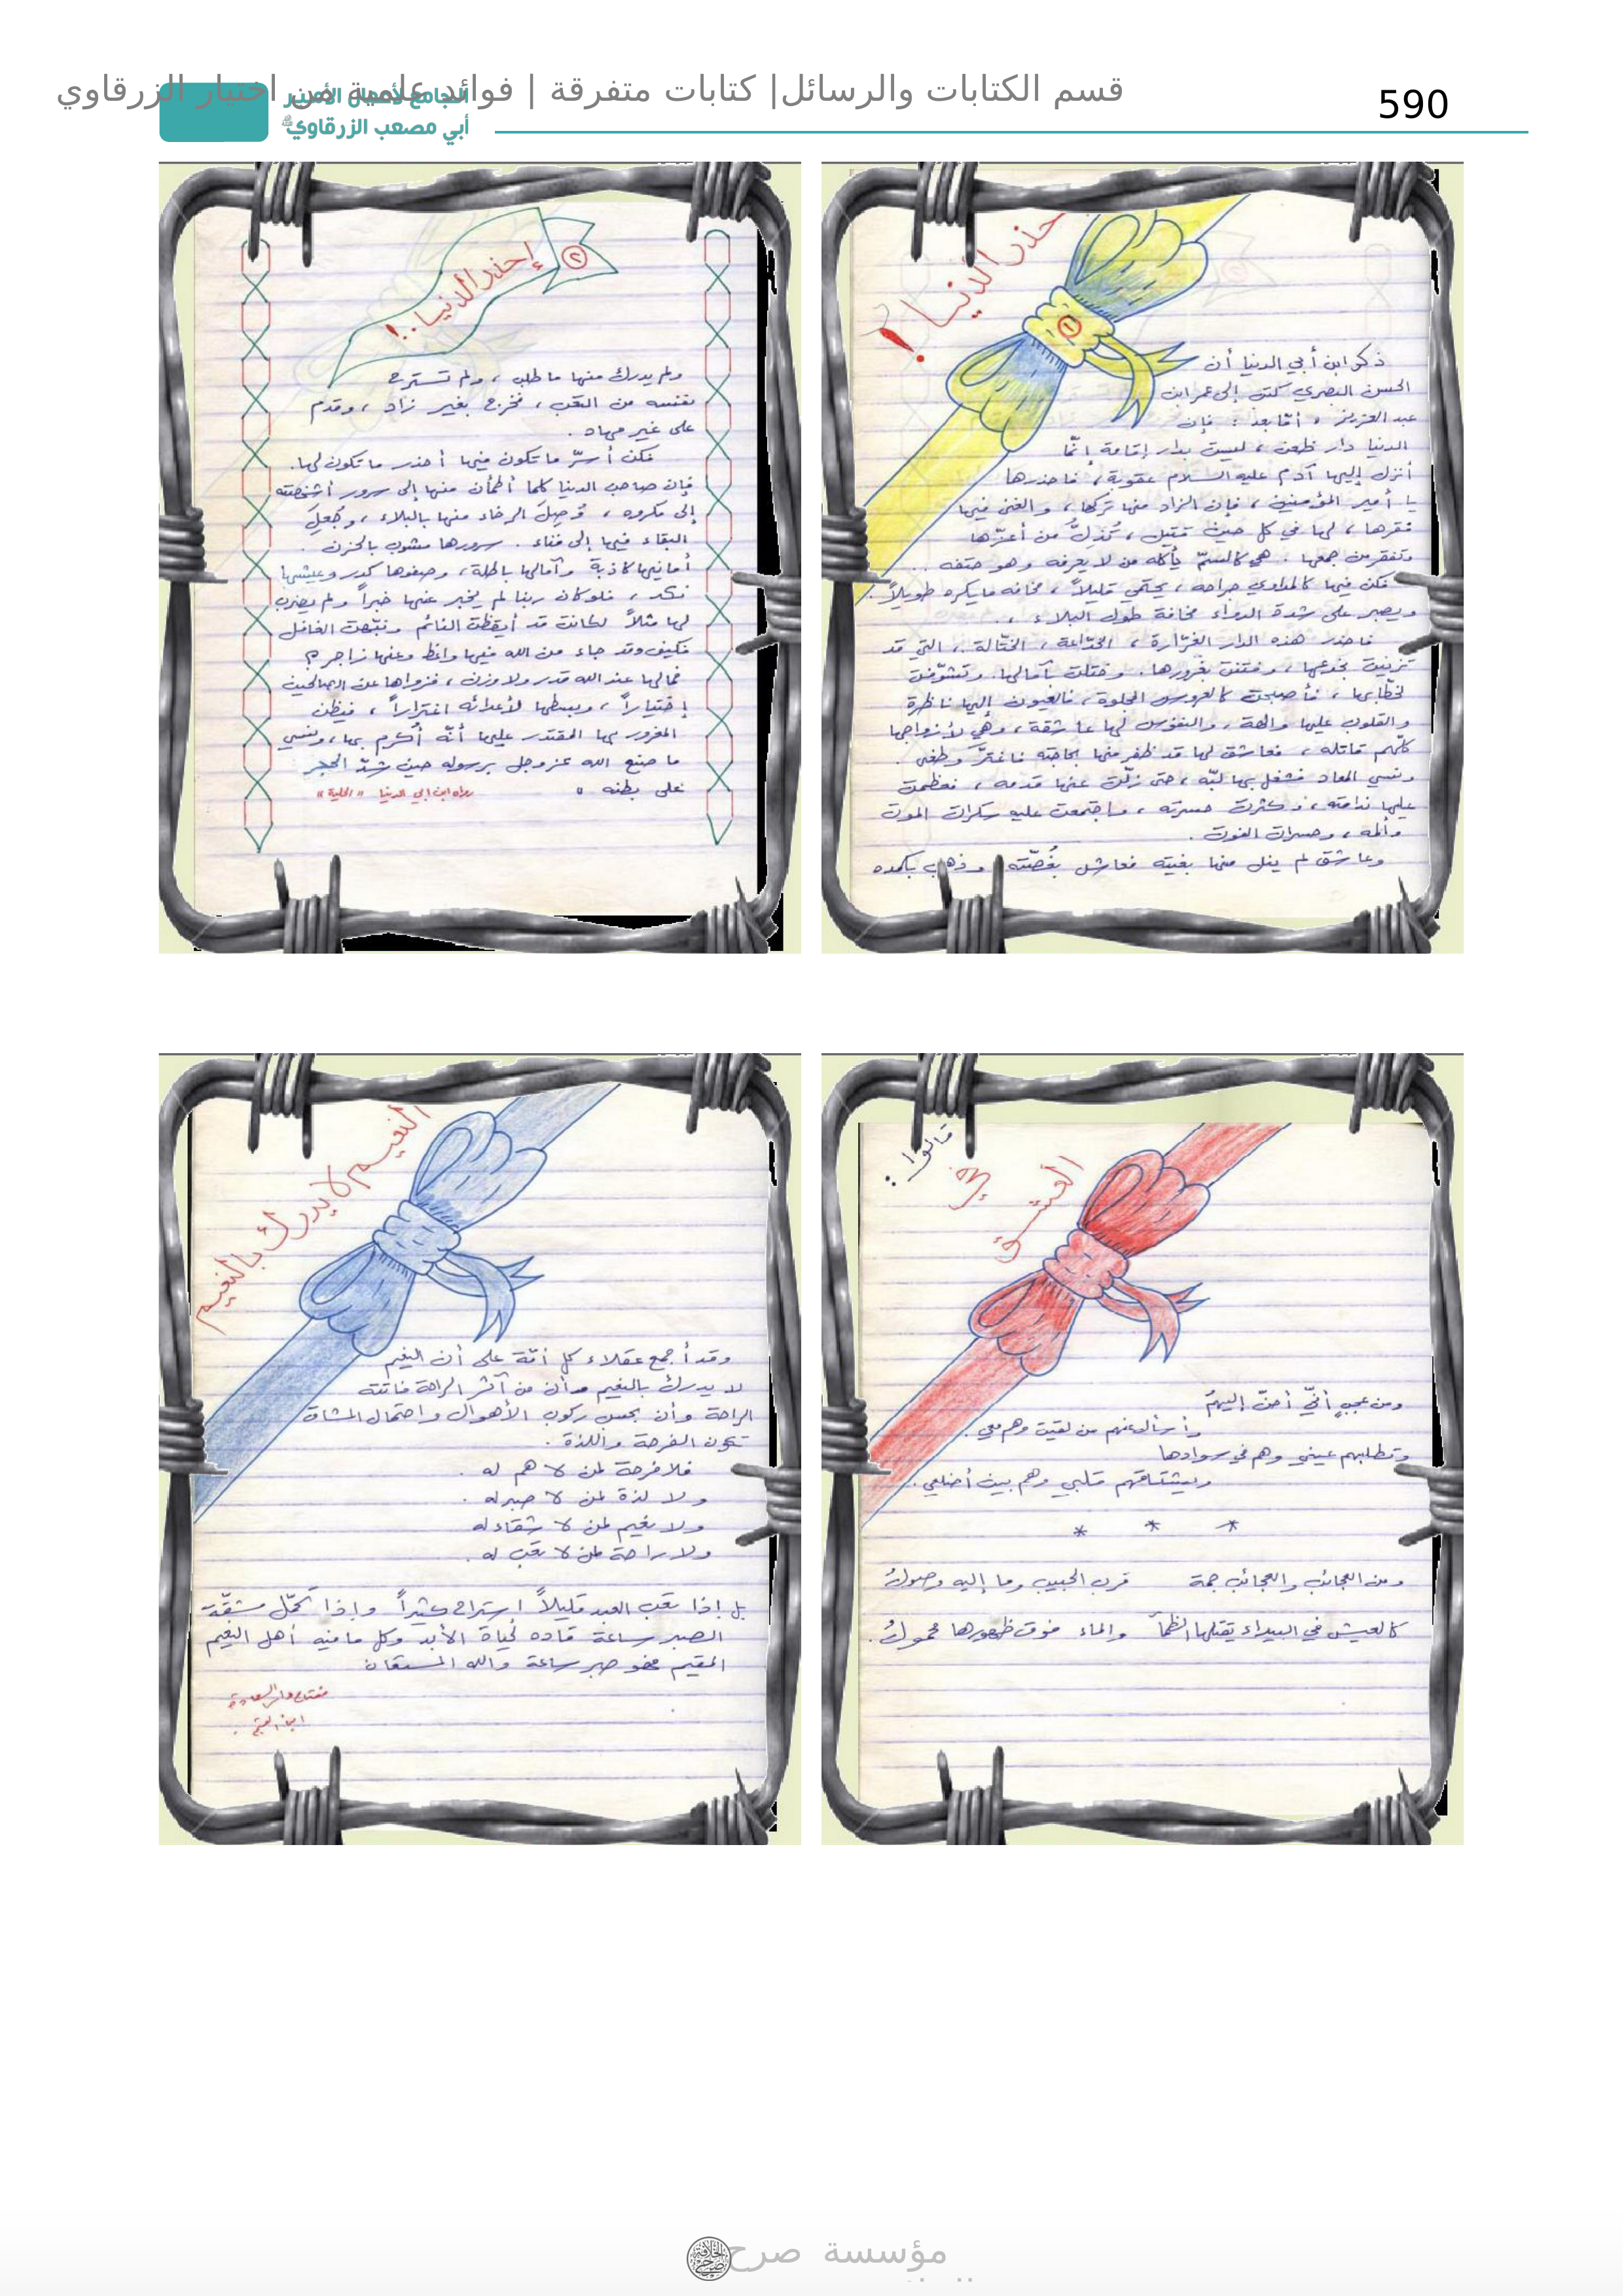 قسم الكتابات والرسائل| كتابات متفرقة | فوائد علمية من اختيار الزرقاوي
590
الجامع لأعمال الأمير
أبي مصعب الزرقاوي
حذر الدنيا!
١
ذكر ابن أبي الدنيا أن
الحسن البصري كتب إلى عمر ابن
عبد العزيز، أمّا بعد: فإن
الدنيا دار ظعن، ليست بدار إقامة إنّما
أنزل إليها آدم عليه السلام عقوبة، فاحذرها
يا أمير المؤمنين، فإن الزاد منها تركها، والغنى فيها
فقرها، لها في كل حين قتيل، تُذِلُّ من أعزّها
وتفقر من جمعها. هي كالسّم يأكله من لا يعرفه وهو حتفه..
فكن فيها كالمداوي جراحه، يحتمي قليلاً، مخافة ما يكره طويلاً.
ويصبر على شدة الدواء مخافة طول البلاء..
فاحذر هذه الدار الغرّارة، الخدّاعة، الختّالة، التي قد
تزينت بخدعها، وفتنت بغرورها. وختلت بآمالها. وتشوّفت
لخطّابها، فأصبحت كالعروس المجلوة، فالعيون إليها ناظرة
والقلوب عليها والهة، والنفوس لها عاشقة، وهي لأزواجها
كلّهم قاتلة، فعاشق لها قد ظفر منها بحاجته فاغترّ وطغى.
ونسي المعاد فشغل بها لبّه، حتى زلّت عنها قدمه، فعظمت
عليها ندامته، وكثرت حسرته، واجتمعت عليه سكرات الموت
وألمه، وحسرات الفوت.
وعاشق لم ينل منها بغيته فعاش بغُصّته وذهب بكمده
٢
إحذر الدنيا..!
ولم يدرك منها ما طلب، ولم تسترح
نفسه من التعب، فخرج بغير زاد، وقدم
على غير مهاد.
فكن أسرّ ما تكون فيها أحذر ما تكون لها.
فإن صاحب الدنيا كلما أطمأن منها إلى سرور أشخصته
إلى مكروه، وُصِلَ الرخاء منها بالبلاء، وجُعِلَ
البقاء فيها إلى فناء. سرورها مشوب بالحزن.
أمانيها كاذبة وآمالها باطلة، وصفوها كدر وعيشها
نكد، فلو كان ربنا لم يخبر عنها خبراً ولم يضرب
لها مثلاً لكانت قد أيقظت النائم ونبّهت الغافل
فكيف وقد جاء من الله فيها واعظ وعنها زاجر؟
فمالها عند الله قدر ولا وزن، فزواها عن الصالحين
إختياراً، وبسطها لأعدائه اغتراراً، فيظن
المغرور بها المقتدر عليها أنّه أُكرم بها، ونسي
ما صنع الله عز وجل برسوله حين شدّ الحجر
على بطنه.
رواه ابن أبي الدنيا "الحلية"
قالوا:
في
العشق
ومن عجبٍ أنّي أحنّ إليهمُ
وأسأل عنهم من لقيت وهم معي.
وتطلبهم عيني وهم في سوادها
ويشتاقهم قلبي وهم بين أضلعي..
* * *
ومن العجائب والعجائب جمة قرب الحبيب وما إليه وصولُ
كالعيش في البيداء يقتلها الظمأ والماء فوق ظهورها محمولُ.
النعيم لا يدرك بالنعيم
وقد أجمع عقلاء كل أمّة على أن النعيم
لا يدرك بالنعيم وأن من آثر الراحة فاتته
الراحة وأن بحسب ركوب الأهوال واحتمال المشاق
تكون الفرحة واللذة.
فلا فرحة لمن لا هم له.
ولا لذة لمن لا صبر له.
ولا نعيم لمن لا شقاء له
ولا راحة لمن لا تعب له.
بل إذا تعب العبد قليلاً إستراح كثيراً وإذا تحمّل مشقّة
الصبر ساعة قاده لحياة الأبد وكل ما فيه أهل النعيم
المقيم فهو صبر ساعة والله المستعان
مفتاح دار السعادة
ابن القيم
مؤسسة صرح